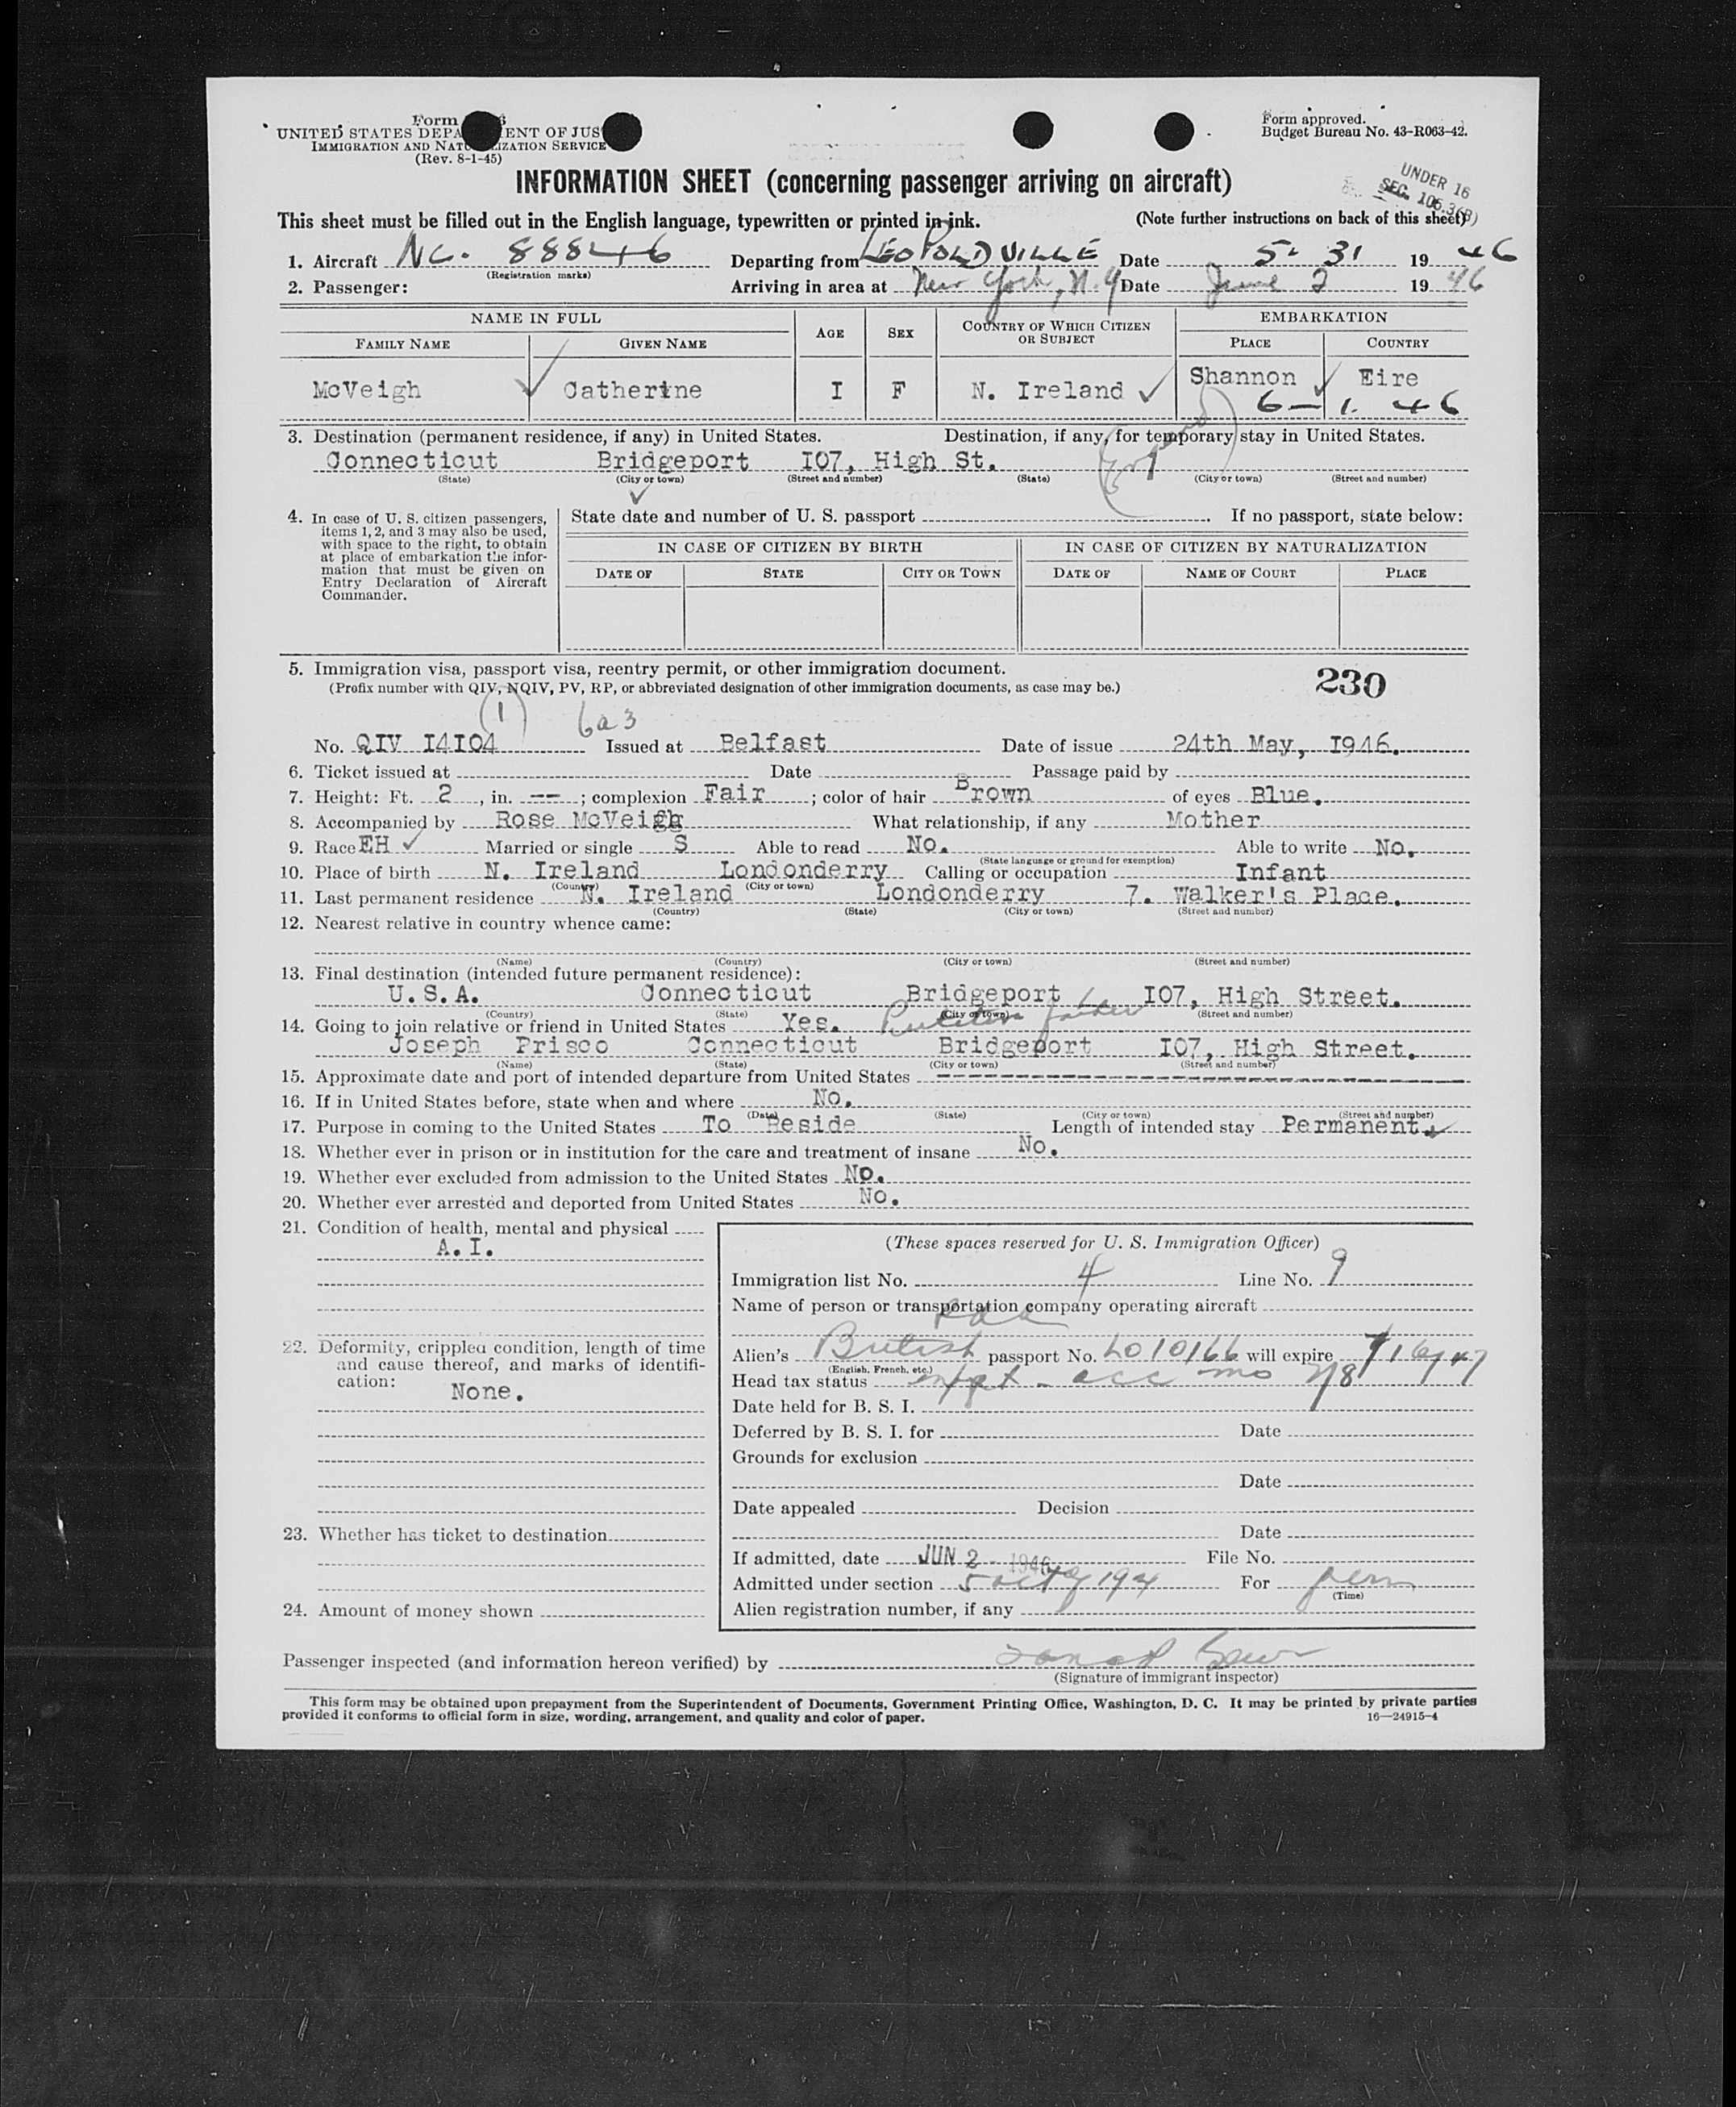 Form
UNITED STATES DEPA ENT OF JUS
IMMIGRATION AND NATU LIZATION SERVICE
(Rev. 8-1-45)
Form approved.
Budget Bureau No. 43-R063-42.
INFORMATION SHEET (concerning passenger arriving on aircraft)
UNDER 16
SEC. 105.3(B)
This sheet must be filled out in the English language, typewritten or printed in ink. (Note further instructions on back of this sheet)
1. Aircraft NC. 88846 Departing from LEOPOLDVILLE Date 5-31 1946
(Registration marks)
2. Passenger: Arriving in area at New York, N.Y Date June 2 1946
NAME IN FULL AGE SEX COUNTRY OF WHICH CITIZEN OR SUBJECT EMBARKATION
FAMILY NAME GIVEN NAME PLACE COUNTRY
McVeigh Catherine I F N. Ireland Shannon Eire
6-1. 46
3. Destination (permanent residence, if any) in United States. Destination, if any, for temporary stay in United States.
Connecticut Bridgeport I07, High St.
(State) (City or town) (Street and number) (State) (City or town) (Street and number)
4. In case of U. S. citizen passengers, items 1, 2, and 3 may also be used, with space to the right, to obtain at place of embarkation the information that must be given on Entry Declaration of Aircraft Commander.
State date and number of U. S. passport If no passport, state below:
IN CASE OF CITIZEN BY BIRTH IN CASE OF CITIZEN BY NATURALIZATION
DATE OF STATE CITY OR TOWN DATE OF NAME OF COURT PLACE
5. Immigration visa, passport visa, reentry permit, or other immigration document.
(Prefix number with QIV, NQIV, PV, RP, or abbreviated designation of other immigration documents, as case may be.)
230
(1) 6a3
No. QIV I4I04 Issued at Belfast Date of issue 24th May, I946.
6. Ticket issued at Date Passage paid by
7. Height: Ft. 2, in. --; complexion Fair; color of hair Brown of eyes Blue.
8. Accompanied by Rose McVeigh What relationship, if any Mother
9. Race EH Married or single S Able to read No. Able to write No.
(State language or ground for exemption)
10. Place of birth N. Ireland Londonderry Calling or occupation Infant
(Country) (City or town)
11. Last permanent residence N. Ireland Londonderry 7. Walker's Place.
(Country) (State) (City or town) (Street and number)
12. Nearest relative in country whence came:
(Name) (Country) (City or town) (Street and number)
13. Final destination (intended future permanent residence):
U.S.A. Connecticut Bridgeport I07, High Street.
(Country) (State) (City or town) (Street and number)
14. Going to join relative or friend in United States Yes. father
Joseph Prisco Connecticut Bridgeport I07, High Street.
(Name) (State) (City or town) (Street and number)
15. Approximate date and port of intended departure from United States
16. If in United States before, state when and where No.
(Date) (State) (City or town) (Street and number)
17. Purpose in coming to the United States To Reside Length of intended stay Permanent.
18. Whether ever in prison or in institution for the care and treatment of insane No.
19. Whether ever excluded from admission to the United States No.
20. Whether ever arrested and deported from United States No.
21. Condition of health, mental and physical
A.I.
22. Deformity, crippled condition, length of time and cause thereof, and marks of identification:
None.
23. Whether has ticket to destination
24. Amount of money shown
(These spaces reserved for U. S. Immigration Officer)
Immigration list No. 4 Line No. 9
Name of person or transportation company operating aircraft
Paa
Alien's British passport No. L010166 will expire
(English, French, etc.)
Head tax status
Date held for B. S. I.
Deferred by B. S. I. for Date
Grounds for exclusion
Date
Date appealed Decision
Date
If admitted, date JUN 2 - 1946 File No.
Admitted under section 5 act of 1924 For perm
(Time)
Alien registration number, if any
Passenger inspected (and information hereon verified) by
(Signature of immigrant inspector)
This form may be obtained upon prepayment from the Superintendent of Documents, Government Printing Office, Washington, D. C. It may be printed by private parties
provided it conforms to official form in size, wording, arrangement, and quality and color of paper. 16—24915-4